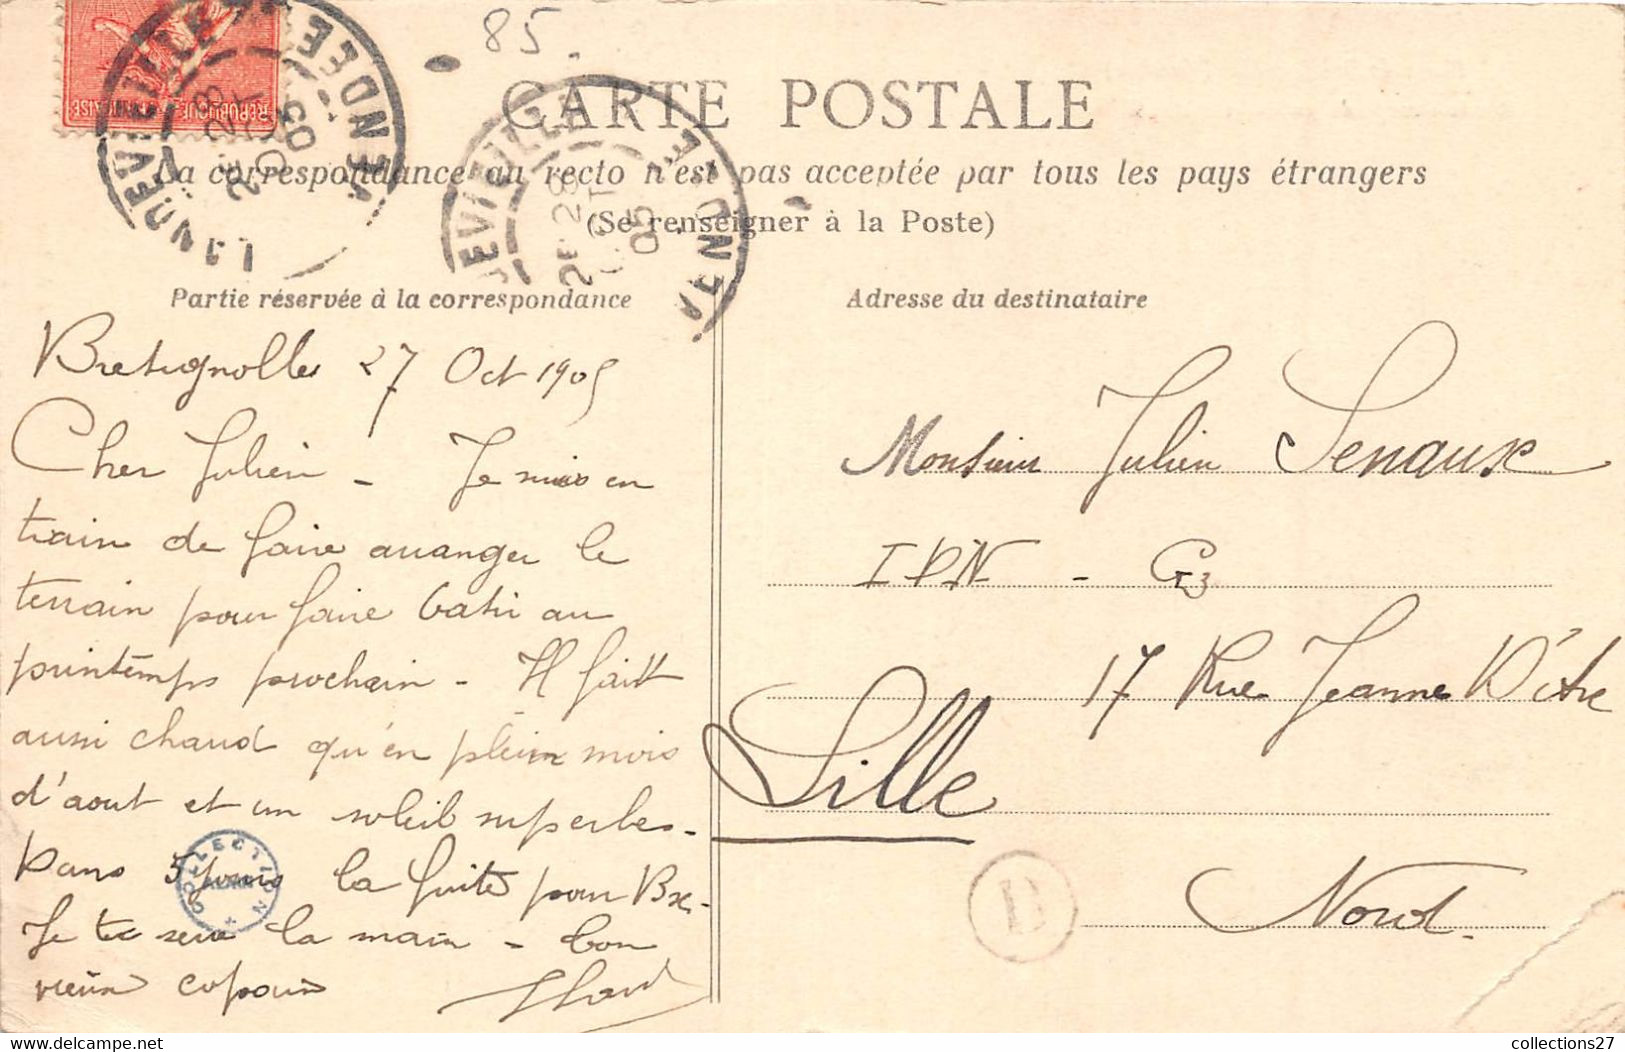 85.
CARTE POSTALE
La correspondance au recto n'est pas acceptée par tous les pays étrangers
(Se renseigner à la Poste)
REPUBLIQUE FRANÇAISE
LANDEVIEILLE VENDÉE
2E 28
OCT
05
EVIEILLE VENDÉE
2E 28
OCT
05
Partie réservée à la correspondance
Bretignolles 27 Oct 1905
Cher Julien - Je suis en
train de faire arranger le
terrain pour faire batir au
printemps prochain - Il fait
aussi chaud qu'en plein mois
d'aout et un soleil superbes -
Dans 5 jours la fuite pour Bx -
Je te serre la main - bon
vieux copain
COLLECTION
Adresse du destinataire
Monsieur Julien Senaux
IDN - G3
17 Rue Jeanne D'Arc
Lille
Nord.
B
collections27